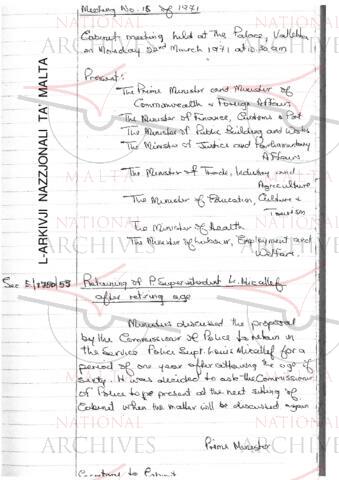 Meeting No. 18 of 1971
Cabinet meeting held at the Palace, Valletta
on Monday 22nd March 1971 at 10.30 am
Present:
The Prime Minister and Minister of
Commonwealth & Foreign Affairs
The Minister of Finance, Customs & Port
The Minister of Public Building and Works
The Minister of Justice and Parliamentary
Affairs
The Minister of Trade, Industry and
Agriculture
The Minister of Education, Culture &
Tourism
The Minister of Health
The Minister of Labour, Employment and
Welfare.
See
Retaining of P. Superintendent L. Micallef
after retiring age
Ministers discussed the proposal
by the Commissioner of Police to retain in
the Service Police Supt. Louis Micallef for a
period of one year after attaining the age of
sixty. It was decided to ask the Commissioner
of Police to be present at the next sitting of
Cabinet when the matter will be discussed again
Prime Minister
L-ARKIVJI NAZZJONALI TA' MALTA
NATIONAL
ARCHIVES
MALTA